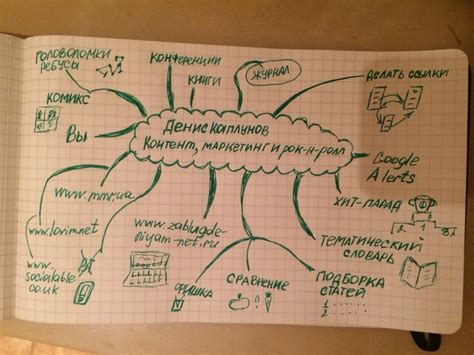 ГОЛОВОЛОМКИ
РЕБУСЫ
КОНФЕРЕНЦИИ
КНИГИ
ЖУРНАЛ
ДЕЛАТЬ ССЫЛКИ
КОМИКС
ВЫ
ДЕНИС КАПЛУНОВ
КОНТЕНТ, МАРКЕТИНГ И РОК-Н-РОЛЛ
Google
Alerts
www.mmr.ua
ХИТ-ПАРАД
2 1 3
www.lovim.net
www.zabluzhde-
niyam-net.ru
ТЕМАТИЧЕСКИЙ
СЛОВАРЬ
www.
socialable
co.uk
ФИШКА
СРАВНЕНИЕ
ПОДБОРКА
СТАТЕЙ
1.
2.